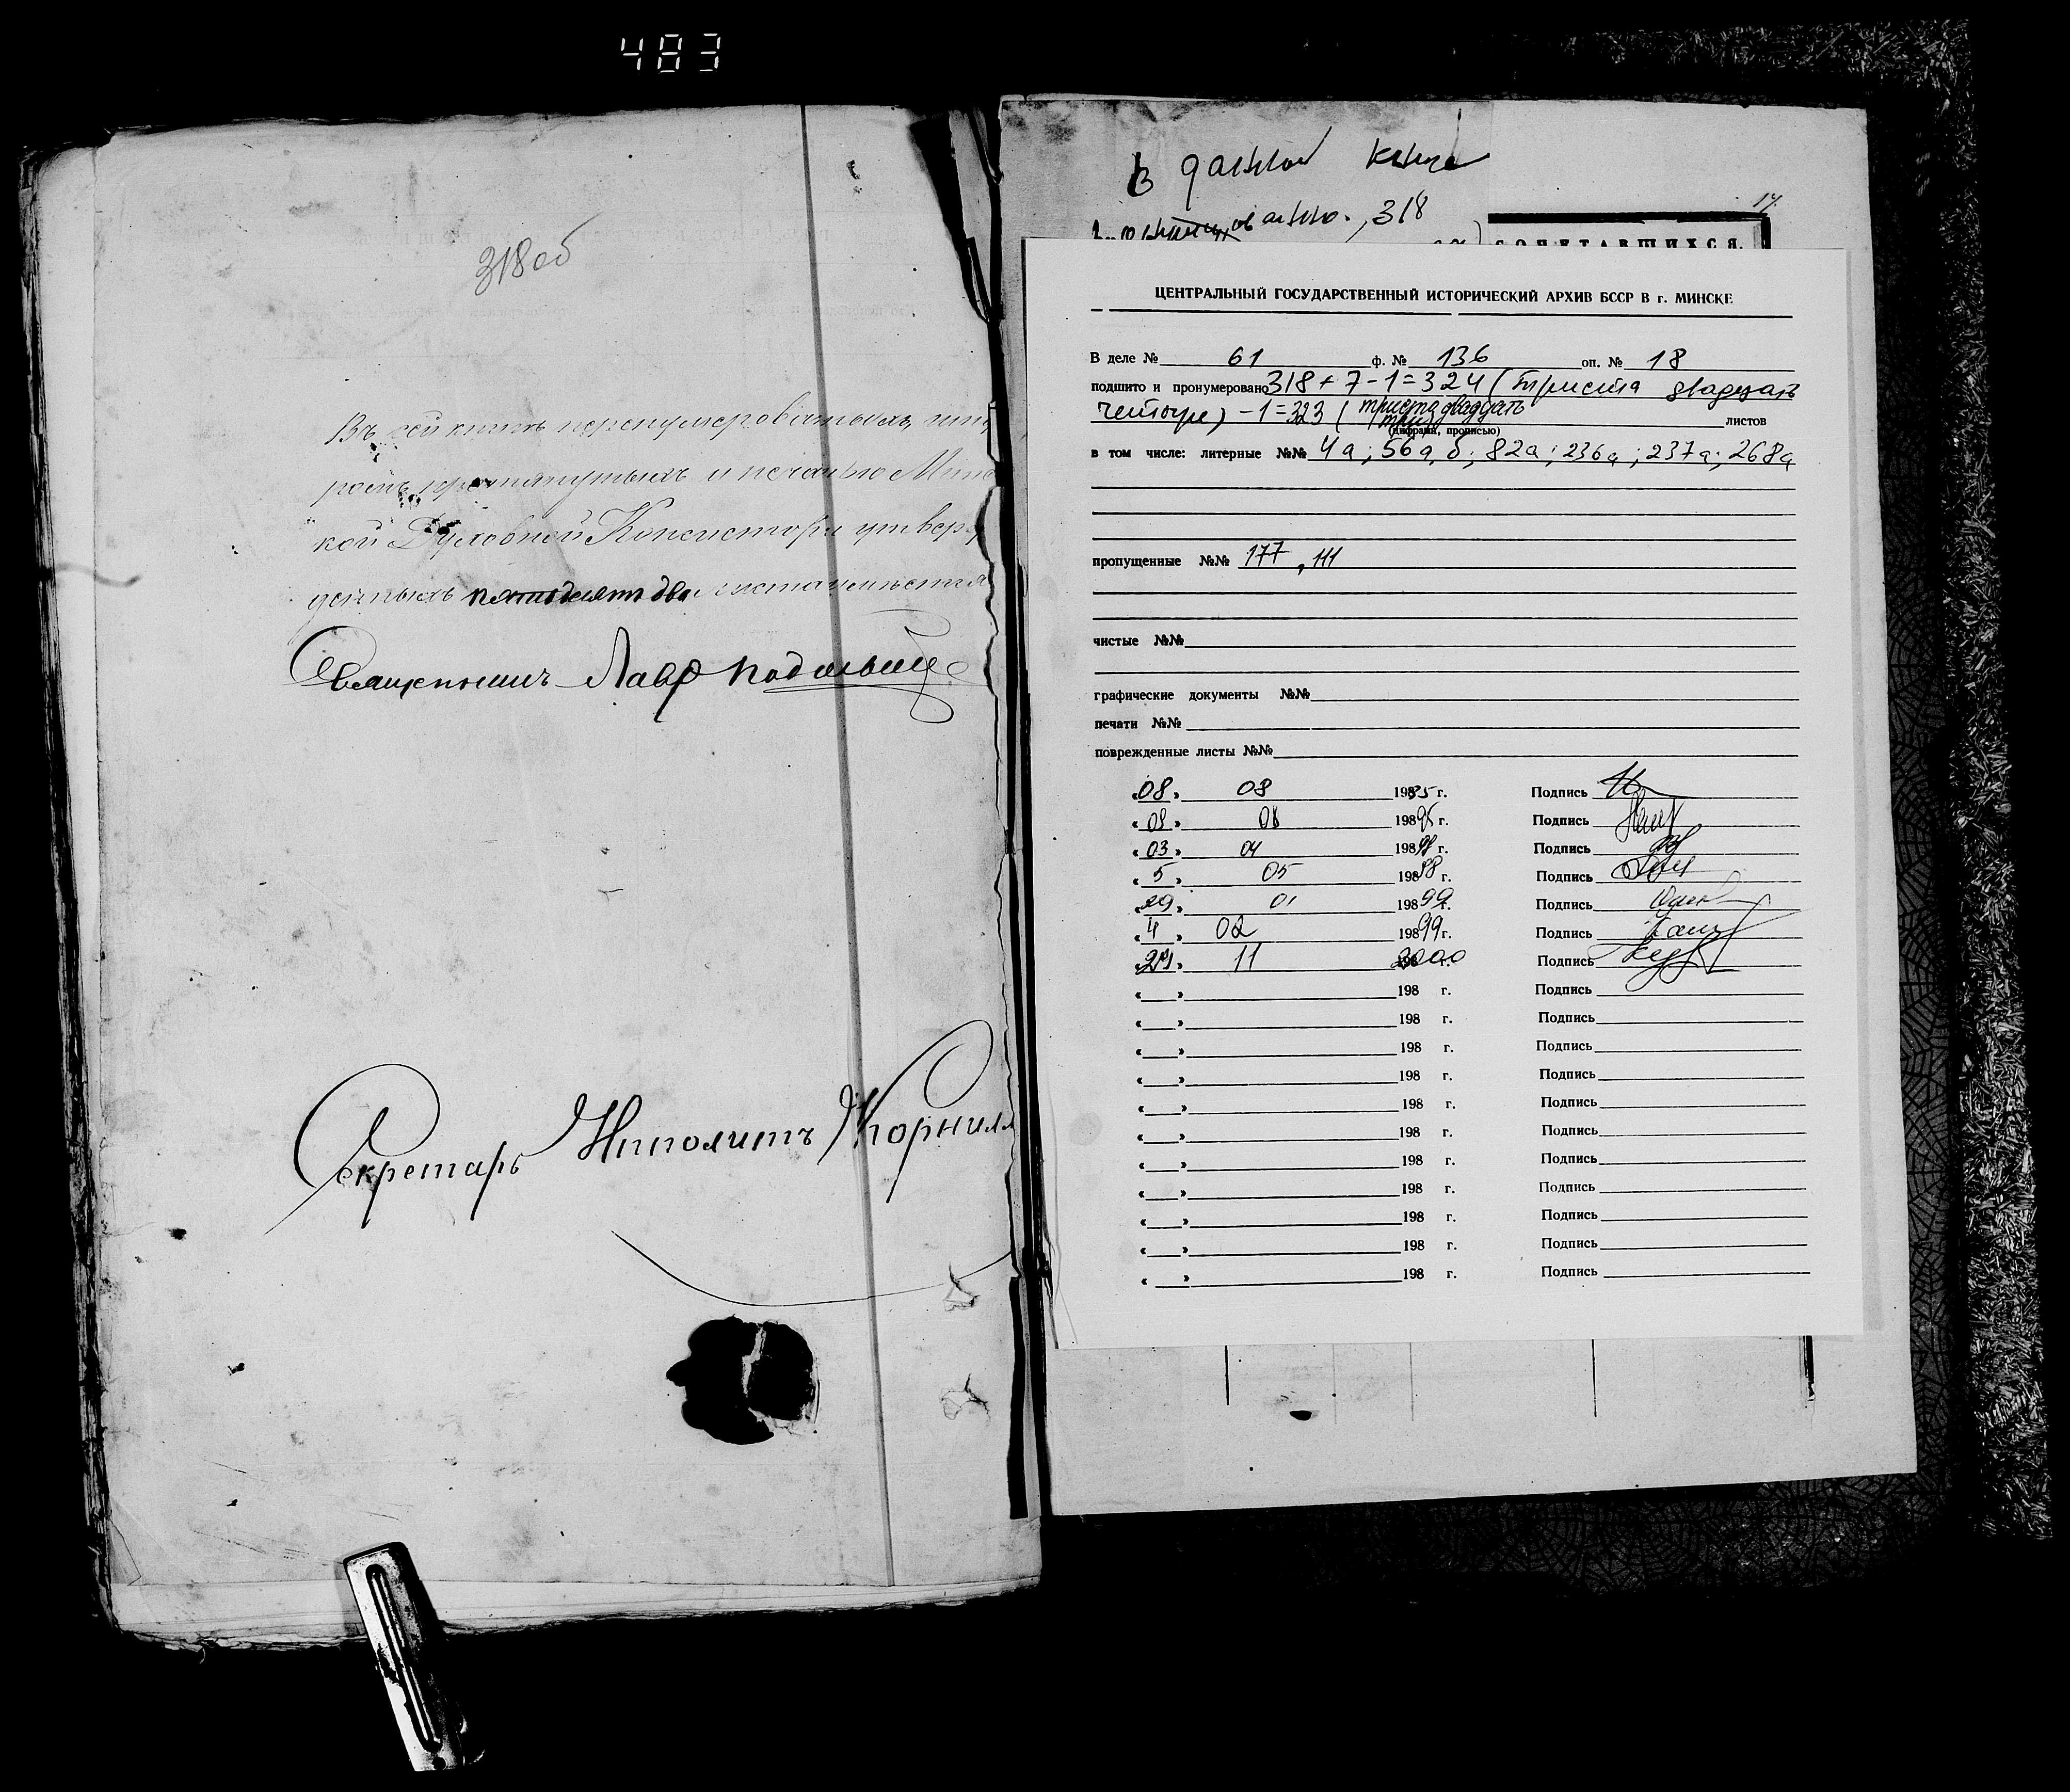 483
318об
Въ сей книгѣ перенумерованныхъ, шну
ромъ протянутыхъ и печатью Минс
кой Духовной Консисторіи утверж
денныхъ пятьдесятъ два листа имѣется
Священникъ Лавр
Секретарь Ипполитъ Корнил
В данной книге
318
17.
СОЧЕТАВШИХСЯ.
ЦЕНТРАЛЬНЫЙ ГОСУДАРСТВЕННЫЙ ИСТОРИЧЕСКИЙ АРХИВ БССР В г. МИНСКЕ
В деле № 61 ф. № 136 оп. № 18
подшито и пронумеровано 318 + 7 - 1 = 324 (триста двадцать
четыре) - 1 = 323 (триста двадцать
три) листов
(цифрами, прописью)
в том числе: литерные №№ 4а; 56а, б; 82а; 236а; 237а; 268а
пропущенные №№ 177, 111
чистые №№
графические документы №№
печати №№
поврежденные листы №№
«08» 08 1985 г. Подпись
«09» 08 198 96 г. Подпись
«03» 04 198 98 г. Подпись
«5» 05 198 98 г. Подпись
«29» 01 198 99 г. Подпись
«4» 02 198 99 г. Подпись
«29» 11 2000 г. Подпись
«  » 198 г. Подпись
«  » 198 г. Подпись
«  » 198 г. Подпись
«  » 198 г. Подпись
«  » 198 г. Подпись
«  » 198 г. Подпись
«  » 198 г. Подпись
«  » 198 г. Подпись
«  » 198 г. Подпись
«  » 198 г. Подпись
«  » 198 г. Подпись